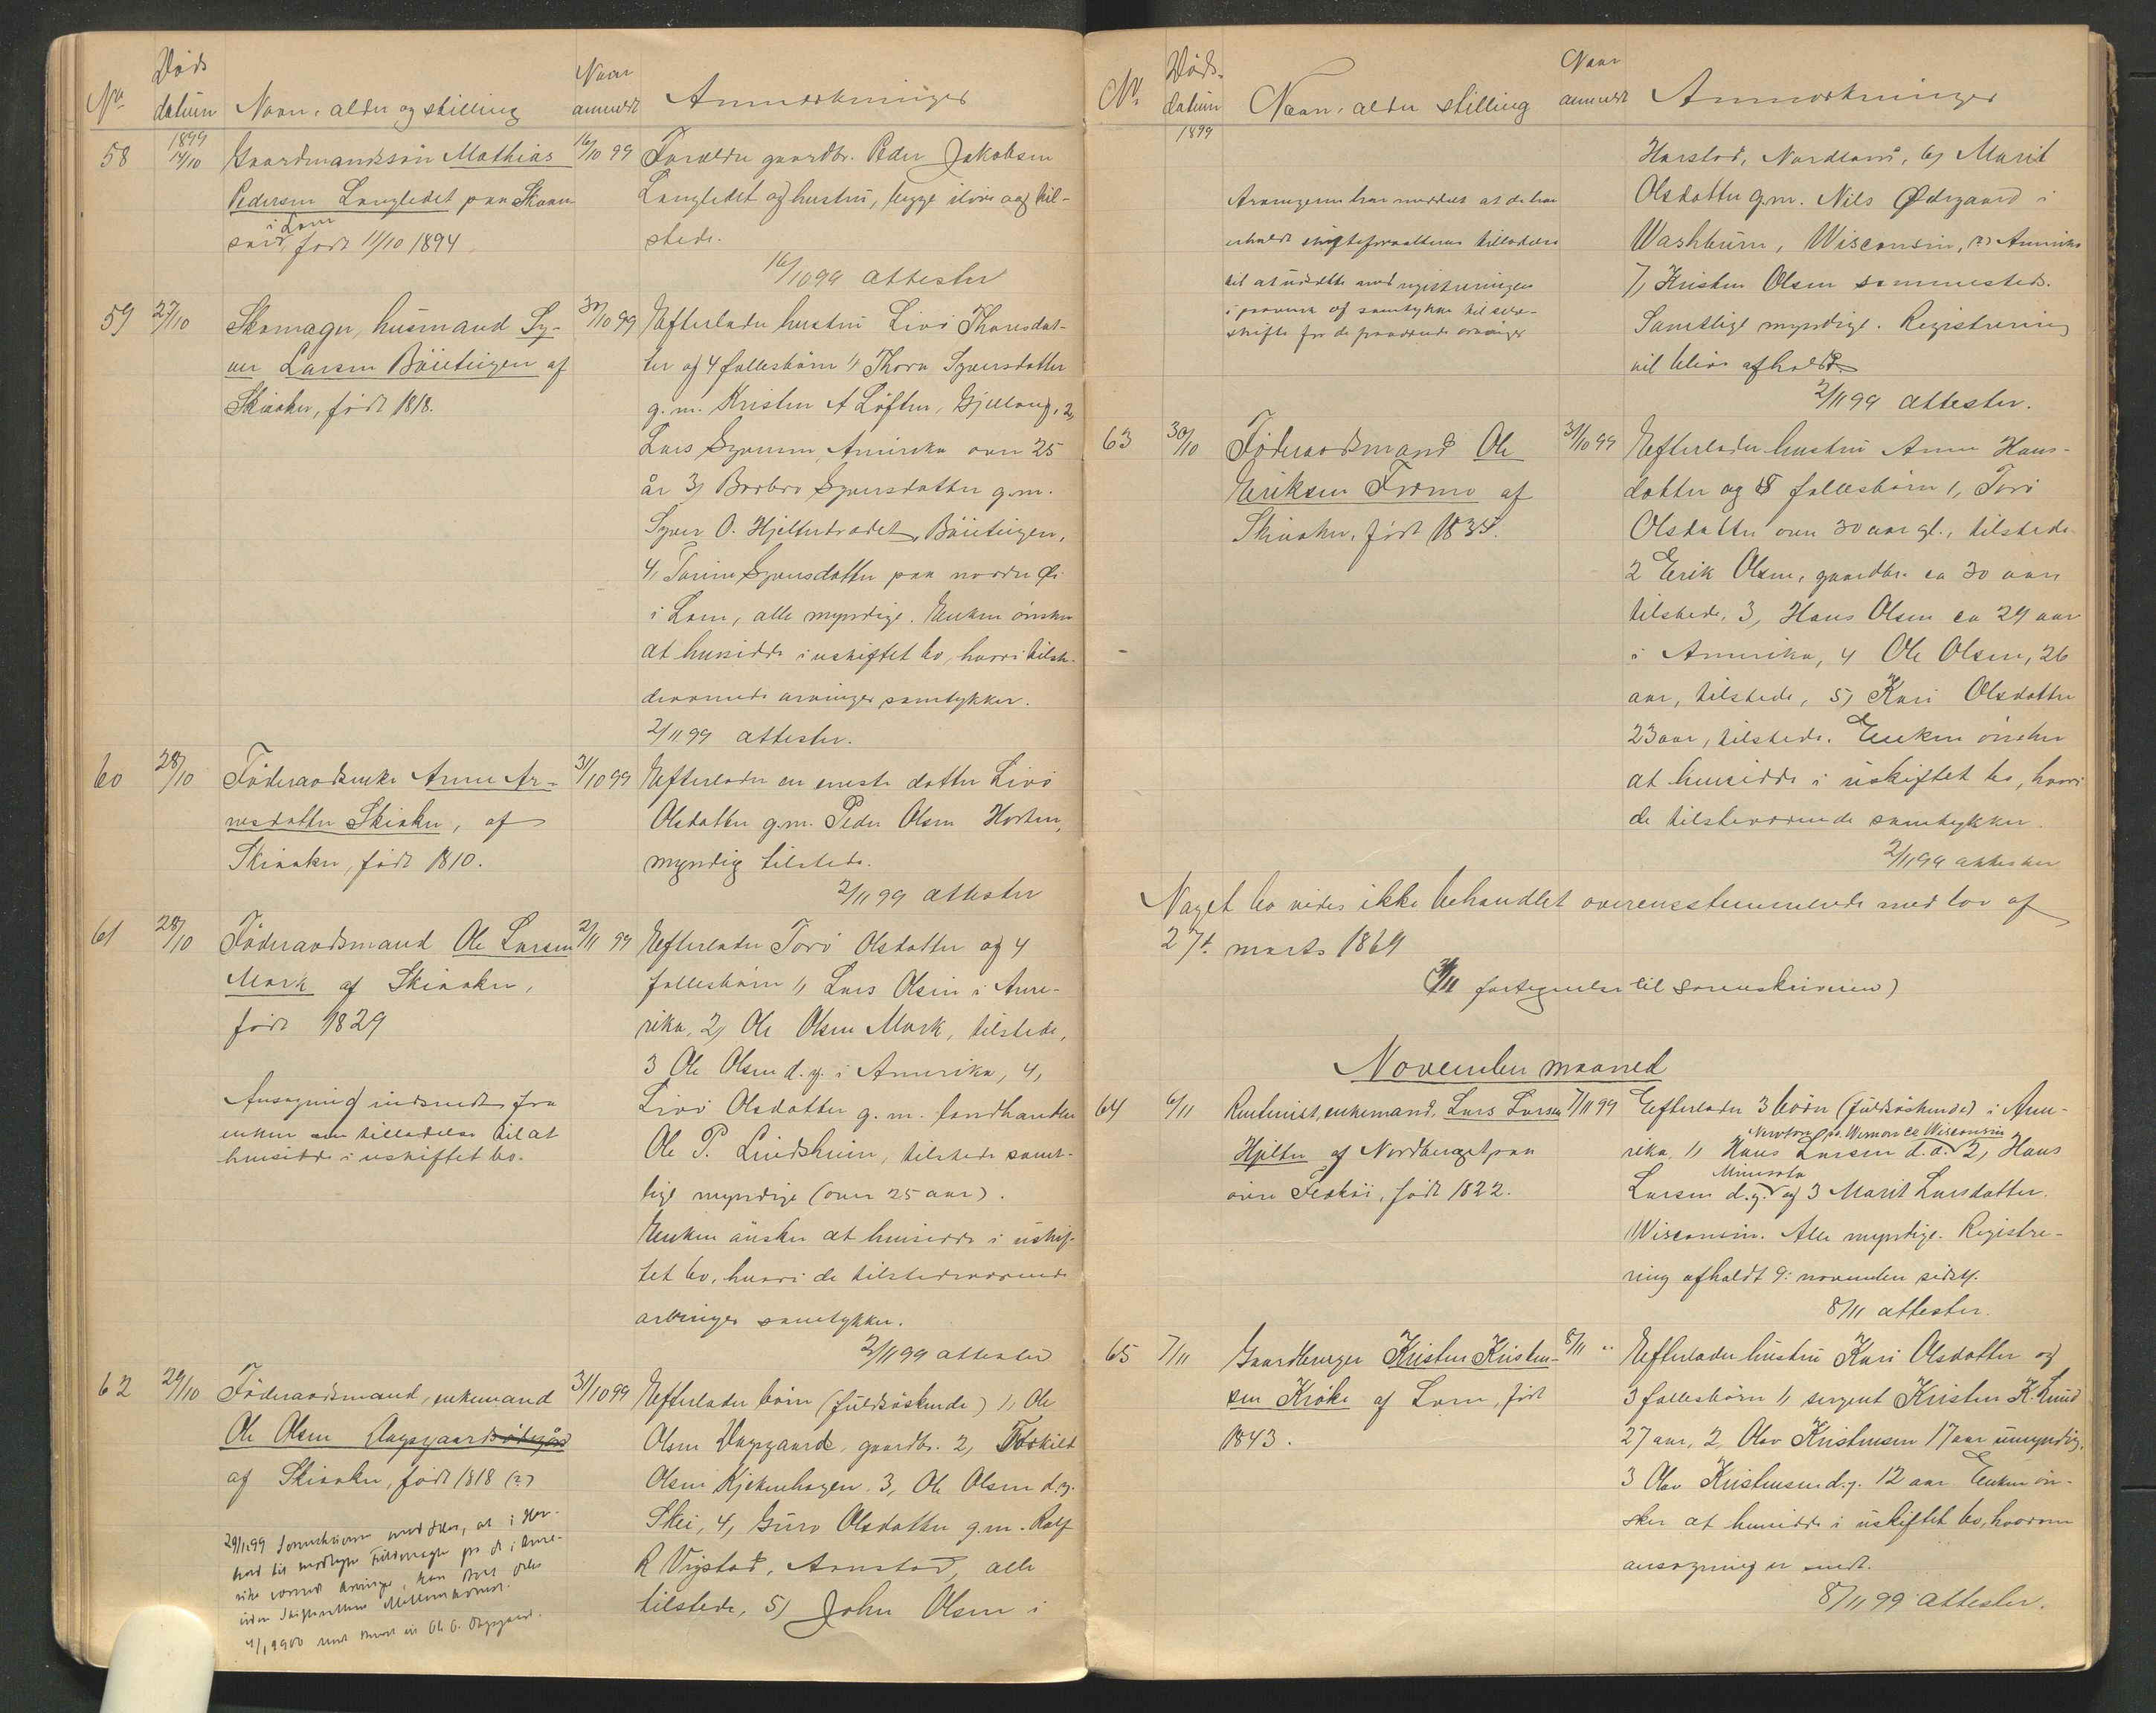 No
Døds
datum
Navn, alder og stilling
Naar
anmeldt
Anmærkninger
58
1899
14/10
Gaardmandssøn Mathias
Pedersen Langledet paa Skaan-
i Lom
født 11/10 1894
16/10 99
Forældre gaardbr. Peder Jakobsen
Langledet og hustru, begge ilive og til-
stede.
16/10 99 attester
59
27/10
Skomager, husmand Sy-
ver Larsen Böieteigen af
Skiaaker, født 1818.
30/10 99
Efterlader hustru Livö Thoresdat-
ter og 4 fællesbörn 1) Thora Syversdatter
g.m. Kristen A Löften, 2,
Lars Syversen, Amerika over 25
år 3) Barbro Syversdatter g.m.
Syver O. Hjeltarbradet, Böieteigen,
4, Torine Syversdatter paa nordre Øi
i Lom, alle myndige. Enken önsker
at hensidde i uskiftet bo, hvori tilste-
deværende arvinger samtykker.
2/11 99 attester.
60
28/10
Föderaadsenke Anne Ar-
nesdatter Skiaker, af
Skiaaker, født 1810.
31/10 99
Efterlader en eneste datter Livö
Olsdatter g.m. Peder Olsen Horten,
myndig tilstede.
2/11 99 attester
61
28/10
Föderaadsmand Ole Larsen
Mork af Skiaaker,
født 1829
Ansøgning indsendt fra
enken om tilladelse til at
hensidde i uskiftet bo.
2/11 99
Efterlader Torö Olsdatter og 4
fællesbörn 1) Lars Olsen i Ame-
rika, 2) Ole Olsen Mork, tilstede,
3 Ole Olsen d.y. i Amerika, 4,
Livö Olsdatter g.m. landhandler
Ole P. Lindsheim, tilstede samt-
lige myndige (over 25 aar).
Enken önsker at hensidde i uskif-
tet bo, hvori de tilstedeværende
arvinger samtykker.
2/11 99 attester
62
29/10
Föderaadsmand, enkemand
Ole Olsen Dagsgaard
af Skiaaker, født 1818 (?)
29/11 99 Sorenskriveren meddeler, at i
31/10 99
Efterlader börn (fuldsöskende) 1, Ole
Olsen Dagsgaard, gaardbr. 2, Torkild
Olsen Kjekenhagen. 3, Ole Olsen d.y.
Skei, 4, Guro Olsdatter g.m. Rolf
R Vigstad, Aanstad, alle
tilstede, 5) John Olsen i
No
Døds-
datum
1899
Navn, alder stilling
Naar
anmeldt
Anmærkninger
Arvingerne har meddelt at de har
erholdt skifteforvalterens tilladelse
til at udsætte med registreringen
i paavente af samtykke til selv-
skifte fra de fraværende arvinger
Harstad, Nordland, 6) Marit
Olsdatter g.m. Nils Ødegaard i
Washburn, Wisconsin, (?) Amerika
7, Kristen Olsen sammesteds.
Samtlige myndige. Registrering
vil blive afholdt.
2/11 99 attester.
63
30/10
Föderaadsmand Ole
Eriksen Fremo af
Skiaaker, født 1835.
31/10 99
Efterlader hustru Anne Hans-
datter og 5 fællesbörn 1, Torö
Olsdatter over 30 aar gl., tilstede
2 Erik Olsen, gaardbr. ca 30 aar
tilstede, 3, Hans Olsen ca 29 aar
i Amerika, 4 Ole Olsen, 26
aar, tilstede, 5) Kari Olsdatter
23 aar, tilstede. Enken önsker
at hensidde i uskiftet bo, hvori
de tilstedværende samtykker.
2/11 99 attester
Noget bo vides ikke behandlet overensstemmende med lov af
27de marts 1869
fortegnelse til sorenskriveren)
November maaned
64
6/11
Rentenist, enkemand, Lars Larsen
Hjelter af Nordberg paa
övre Fesköi, født 1822.
7/11 99
Efterlader 3 börn (fuldsöskende) i Ame-
Newton Vernon co Wisconsin
rika, 1, Hans Larsen d.æ. 2, Hans
Minesota
Larsen d.y. og 3 Marit Larsdatter.
Wisconsin. Alle myndige. Registre-
ring afholdt 9: november sidstl.
8/11 attester.
65
7/11
Gaardbruger Kristen Kristen-
sen Kroke af Lom, født
1843.
8/11 "
Efterlader hustru Kari Olsdatter og
3 fællesbörn 1, sergent Kristen K. Lund
27 aar, 2, Olav Kristensen 17 aar umyndig,
3 Olav Kristensen d.y. 12 aar Enken ön-
sker at hensidde i uskiftet bo, hvorom
ansøgning er sendt.
8/11 99 attester.